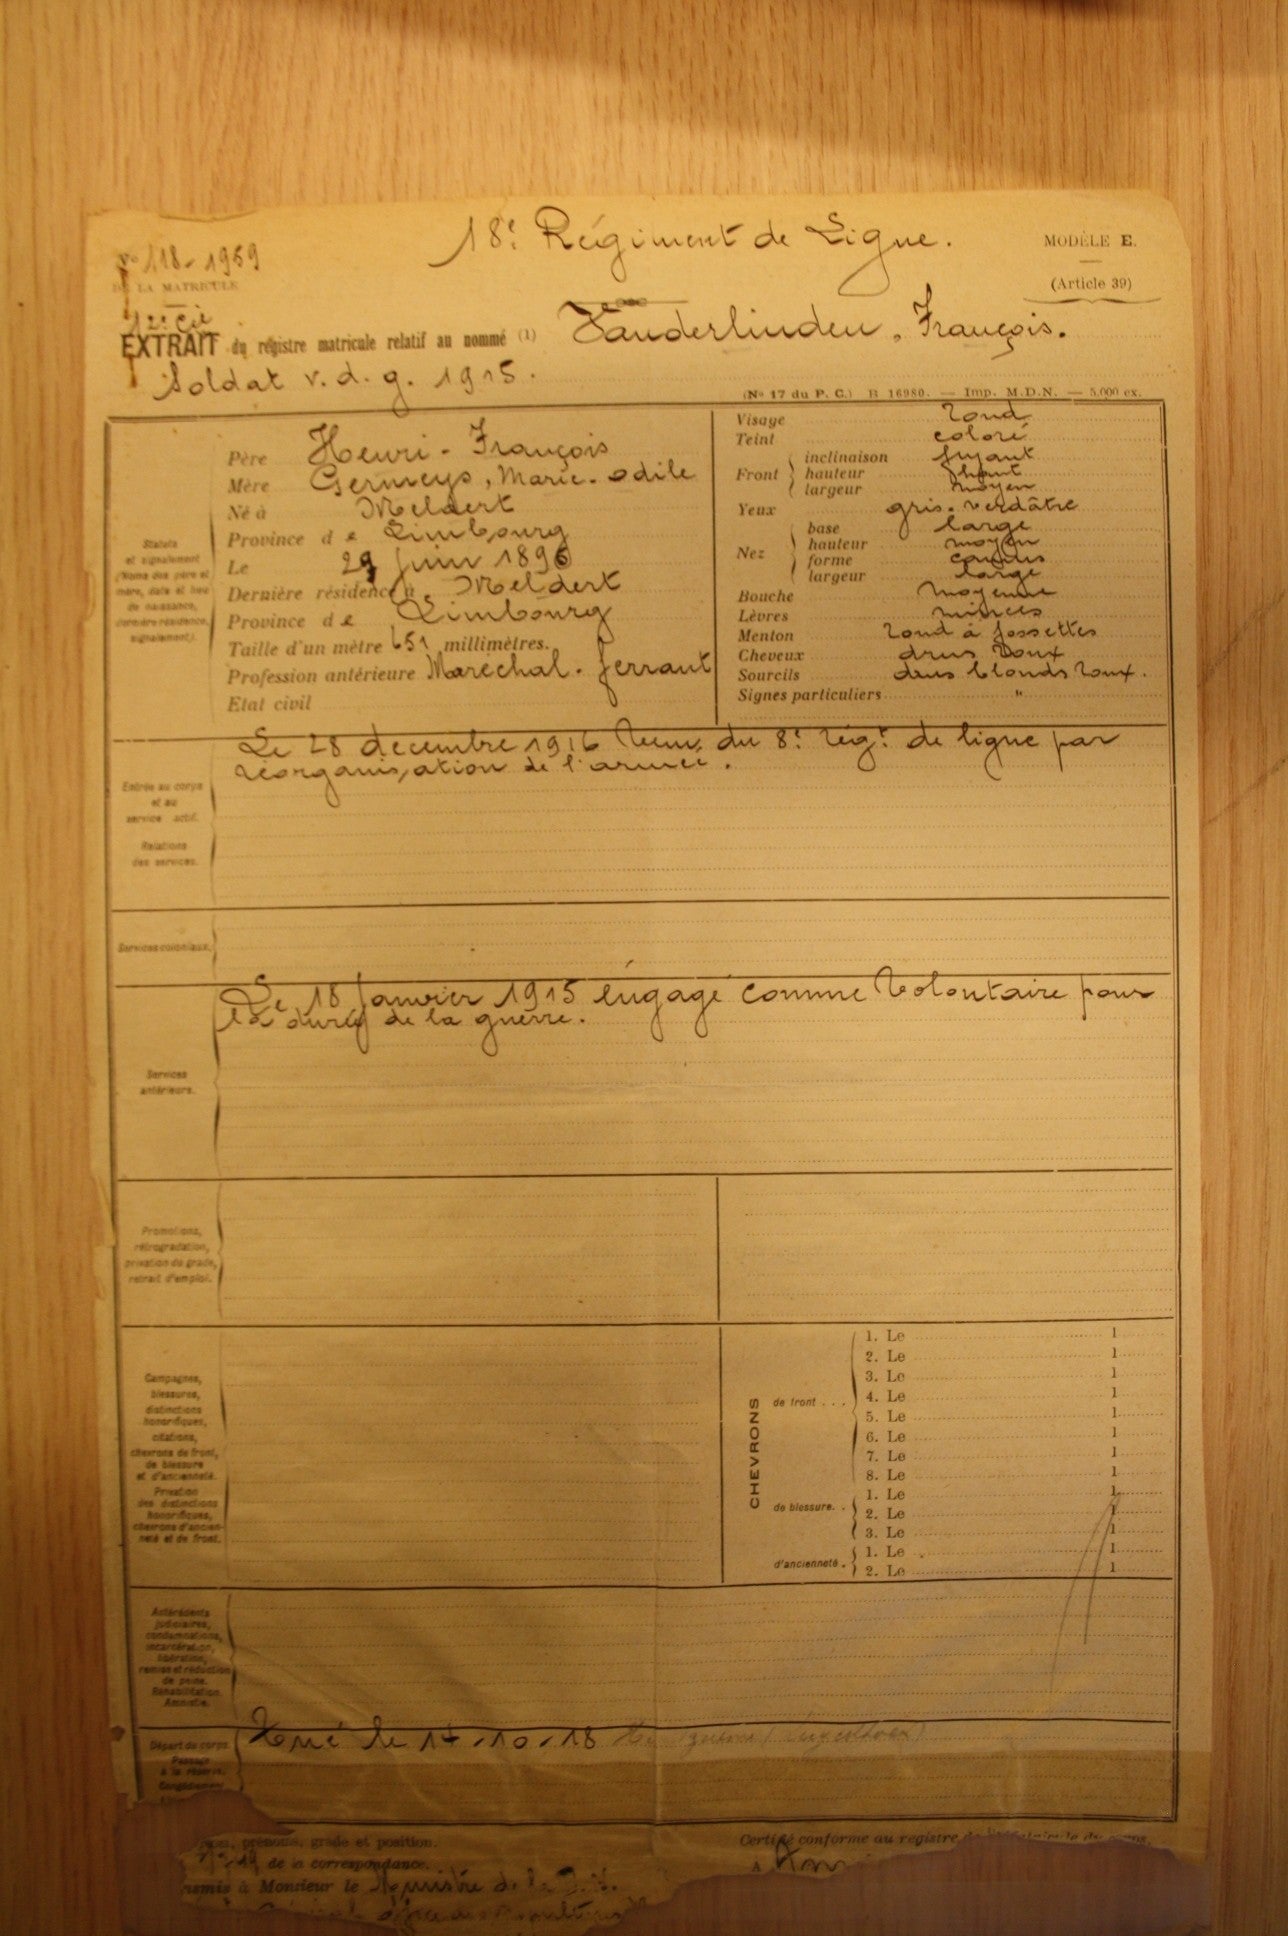 18e Régiment de Ligne.
MODÈLE E.
(Article 39)
No 118-1959
DE LA MATRICULE
12e Cie
EXTRAIT du régistre matricule relatif au nommé (1) Vanderlinden, François.
Soldat v.d.g. 1915.
(No 17 du P. C.) B 16980. — Imp. M.D.N. — 5.000 ex.
Statuts et signalement (Noms des père et mère, date et lieu de naissance, dernière résidence, signalement).
Père Henri-François
Mère Germeys, Marie-Odile
Né à Meldert
Province de Limbourg
Le 29 Juin 1896
Dernière résidence à Meldert
Province de Limbourg
Taille d'un mètre 651 millimètres.
Profession antérieure Maréchal-ferrant
Etat civil
Visage rond
Teint coloré
Front
inclinaison fuyant
hauteur haut
largeur moyen
Yeux gris-verdâtre
Nez
base large
hauteur moyen
forme
largeur large
Bouche moyenne
Lèvres minces
Menton rond à fossettes
Cheveux drus roux
Sourcils drus blonds roux.
Signes particuliers "
Entrée au corps et au service actif.
Relations des services.
Le 28 decembre 1916 Venu du 8e régt de ligne par
réorganisation de l'armée.
Services coloniaux.
Services antérieurs.
Le 18 Janvier 1915 engagé comme Volontaire pour
la durée de la guerre.
Promotions, rétrogradation, privation du grade, retrait d'emploi.
Campagnes, blessures, distinctions honorifiques, citations, chevrons de front, de blessure et d'ancienneté.
Privation des distinctions honorifiques, chevrons d'ancienneté et de front.
CHEVRONS
de front . . .
1. Le 1
2. Le 1
3. Le 1
4. Le 1
5. Le 1
6. Le 1
7. Le 1
8. Le 1
de blessure. . .
1. Le 1
2. Le 1
3. Le 1
d'ancienneté .
1. Le 1
2. Le 1
Antécédents judiciaires, condamnations, incarcération, libération, remise et réduction de peine. Réhabilitation. Amnistie.
Départ du corps. Passage à la réserve. Congédiement
Tué le 14.10.18
prénoms, grade et position.
Certifié conforme au registre
de la correspondance.
A
remis à Monsieur le Ministre de la